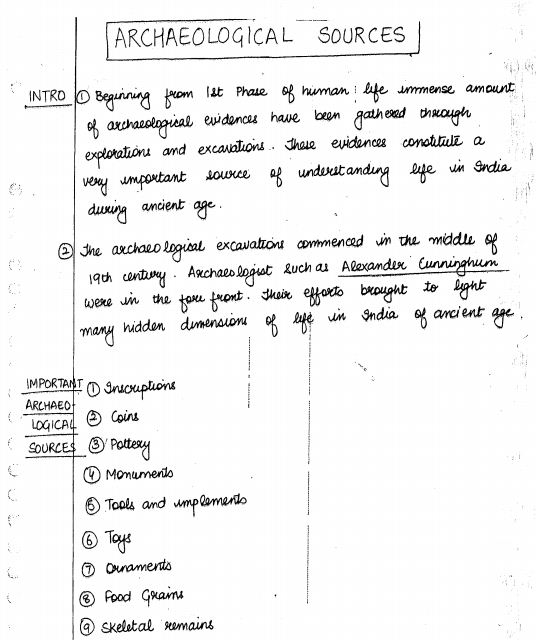 ARCHAEOLOGICAL SOURCES
INTRO ① Beginning from 1st Phase of human life immense amount
of archaeological evidences have been gathered through
explorations and excavations. These evidences constitute a
very important source of understanding life in India
during ancient age.
② The archaeological excavations commenced in the middle of
19th century. Archaeologist such as Alexander Cunninghum
were in the fore front. Their efforts brought to light
many hidden dimensions of life in India of ancient age.
IMPORTANT ① Inscriptions
ARCHAEO-
LOGICAL ② Coins
SOURCES ③ Pottery
④ Monuments
⑤ Tools and implements
⑥ Toys
⑦ Ornaments
⑧ Food Grains
⑨ Skeletal remains